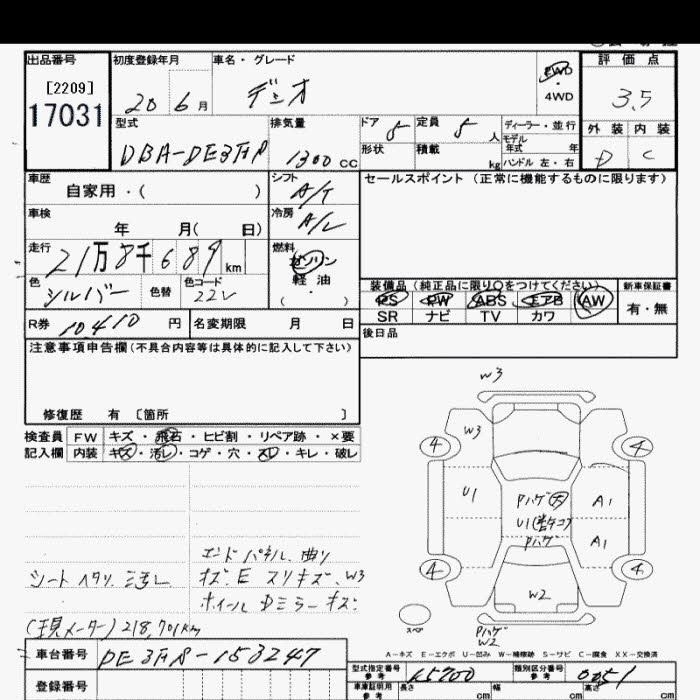 出品番号
[2209]
17031
初度登録年月
20 6月
車名・グレード
デミオ
FWD
4WD
評価点
3.5
外装 内装
D C
型式
DBA-DE3FR
排気量
1300cc
ドア 5
定員 5人
形状
積載 kg
ディーラー・並行
モデル年式 年
ハンドル 左・右
車歴
自家用・( )
シフト
A/T
セールスポイント (正常に機能するものに限ります)
車検
年 月( 日)
冷房
A/C
走行
21万8千689km
燃料
ガソリン
軽油
( )
色
シルバー
色替
色コード
22V
装備品(純正品に限り○をつけてください)
PS PW ABS エアB AW
SR ナビ TV カワ
新車保証書
有・無
R券 10410円
名変期限 月 日
後日品
注意事項申告欄(不具合内容等は具体的に記入して下さい)
修復歴 有 〔箇所 〕
検査員 FW キズ・飛石・ヒビ割・リペア跡・×要
記入欄 内装 キズ・汚レ・コゲ・穴・スレ・キレ・破レ
W3
W3
4 4
U1
Pハゲ
A1
U1
Pハゲ
A1
4 4
W2
スペ
Pハゲ
W2
エンドパネル曲り
シートヘタリ、汚レ
キズ、E スリキズ、W3
ホイール Dミラーキズ
(現メーター)218,701km
A-キズ E-エクボ U-凹み W-補修跡 S-サビ C-腐食 XX-交換済
車台番号
DE3FR-153247
型式指定番号
参考
15700
類別区分番号
参考
0051
登録番号
車庫証明用
参考
長さ cm
幅 cm
高さ cm